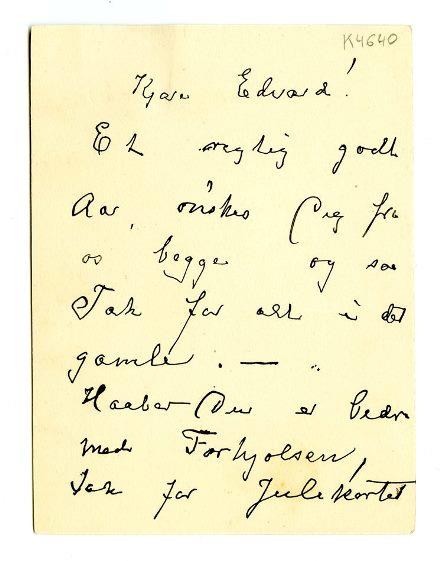 K4640
Kjære Edvard!
Et rigtig godt
Aar, ønskes Dig fra
os begge og saa
Tak for alt i det
gamle. —
Haaber Du er bedre
med Forkjølsen,
Tak for Julekortet